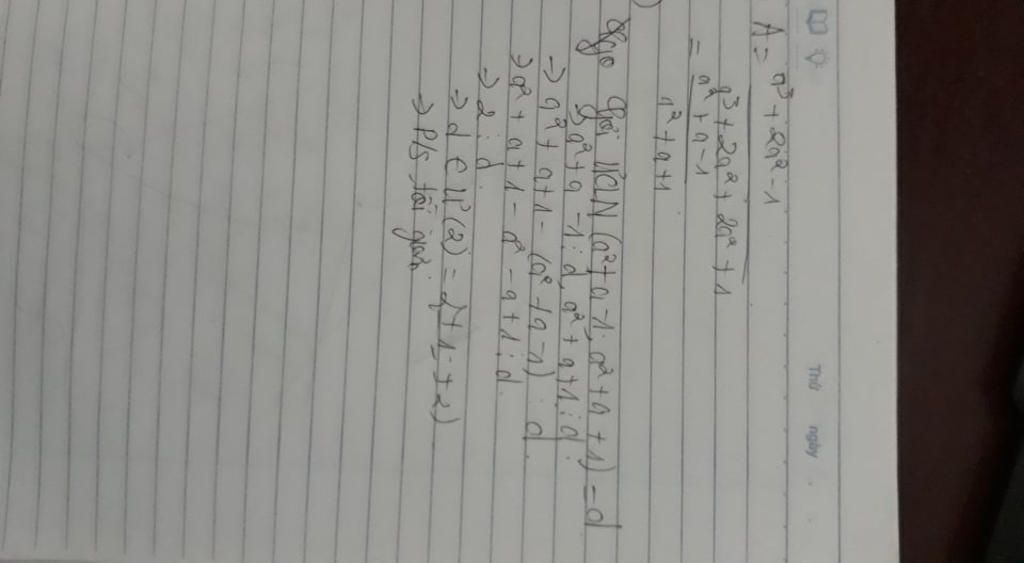 Thứ ngày
A = a³ + 2a² - 1
a³ + 2a² + 2a² + 1
= a² + a - 1
a² + a + 1
gọi ƯCLN (a² + a - 1; a² + a + 1) = d
→ a² + a - 1 ⋮ d, a² + a + 1 ⋮ d
→ a² + a + 1 - (a² + a - 1) ⋮ d
→ a² + a + 1 - a² - a + 1 ⋮ d
→ 2 ⋮ d
→ d ∈ Ư(2) =
→ P/s tối giản